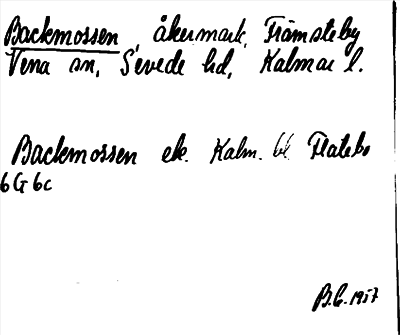 Backmossen, åkermark, Främsteby
Vena sn, Sevede hd, Kalmar l.
Backmossen ek. Kalm. bl Flatebo
6G 6c
B.C. 1957